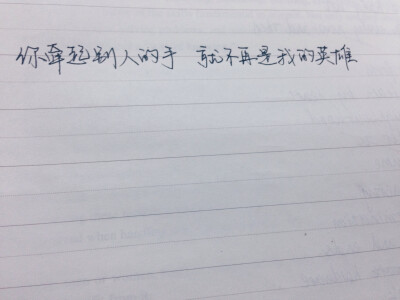 你牵起别人的手 就不再是我的英雄